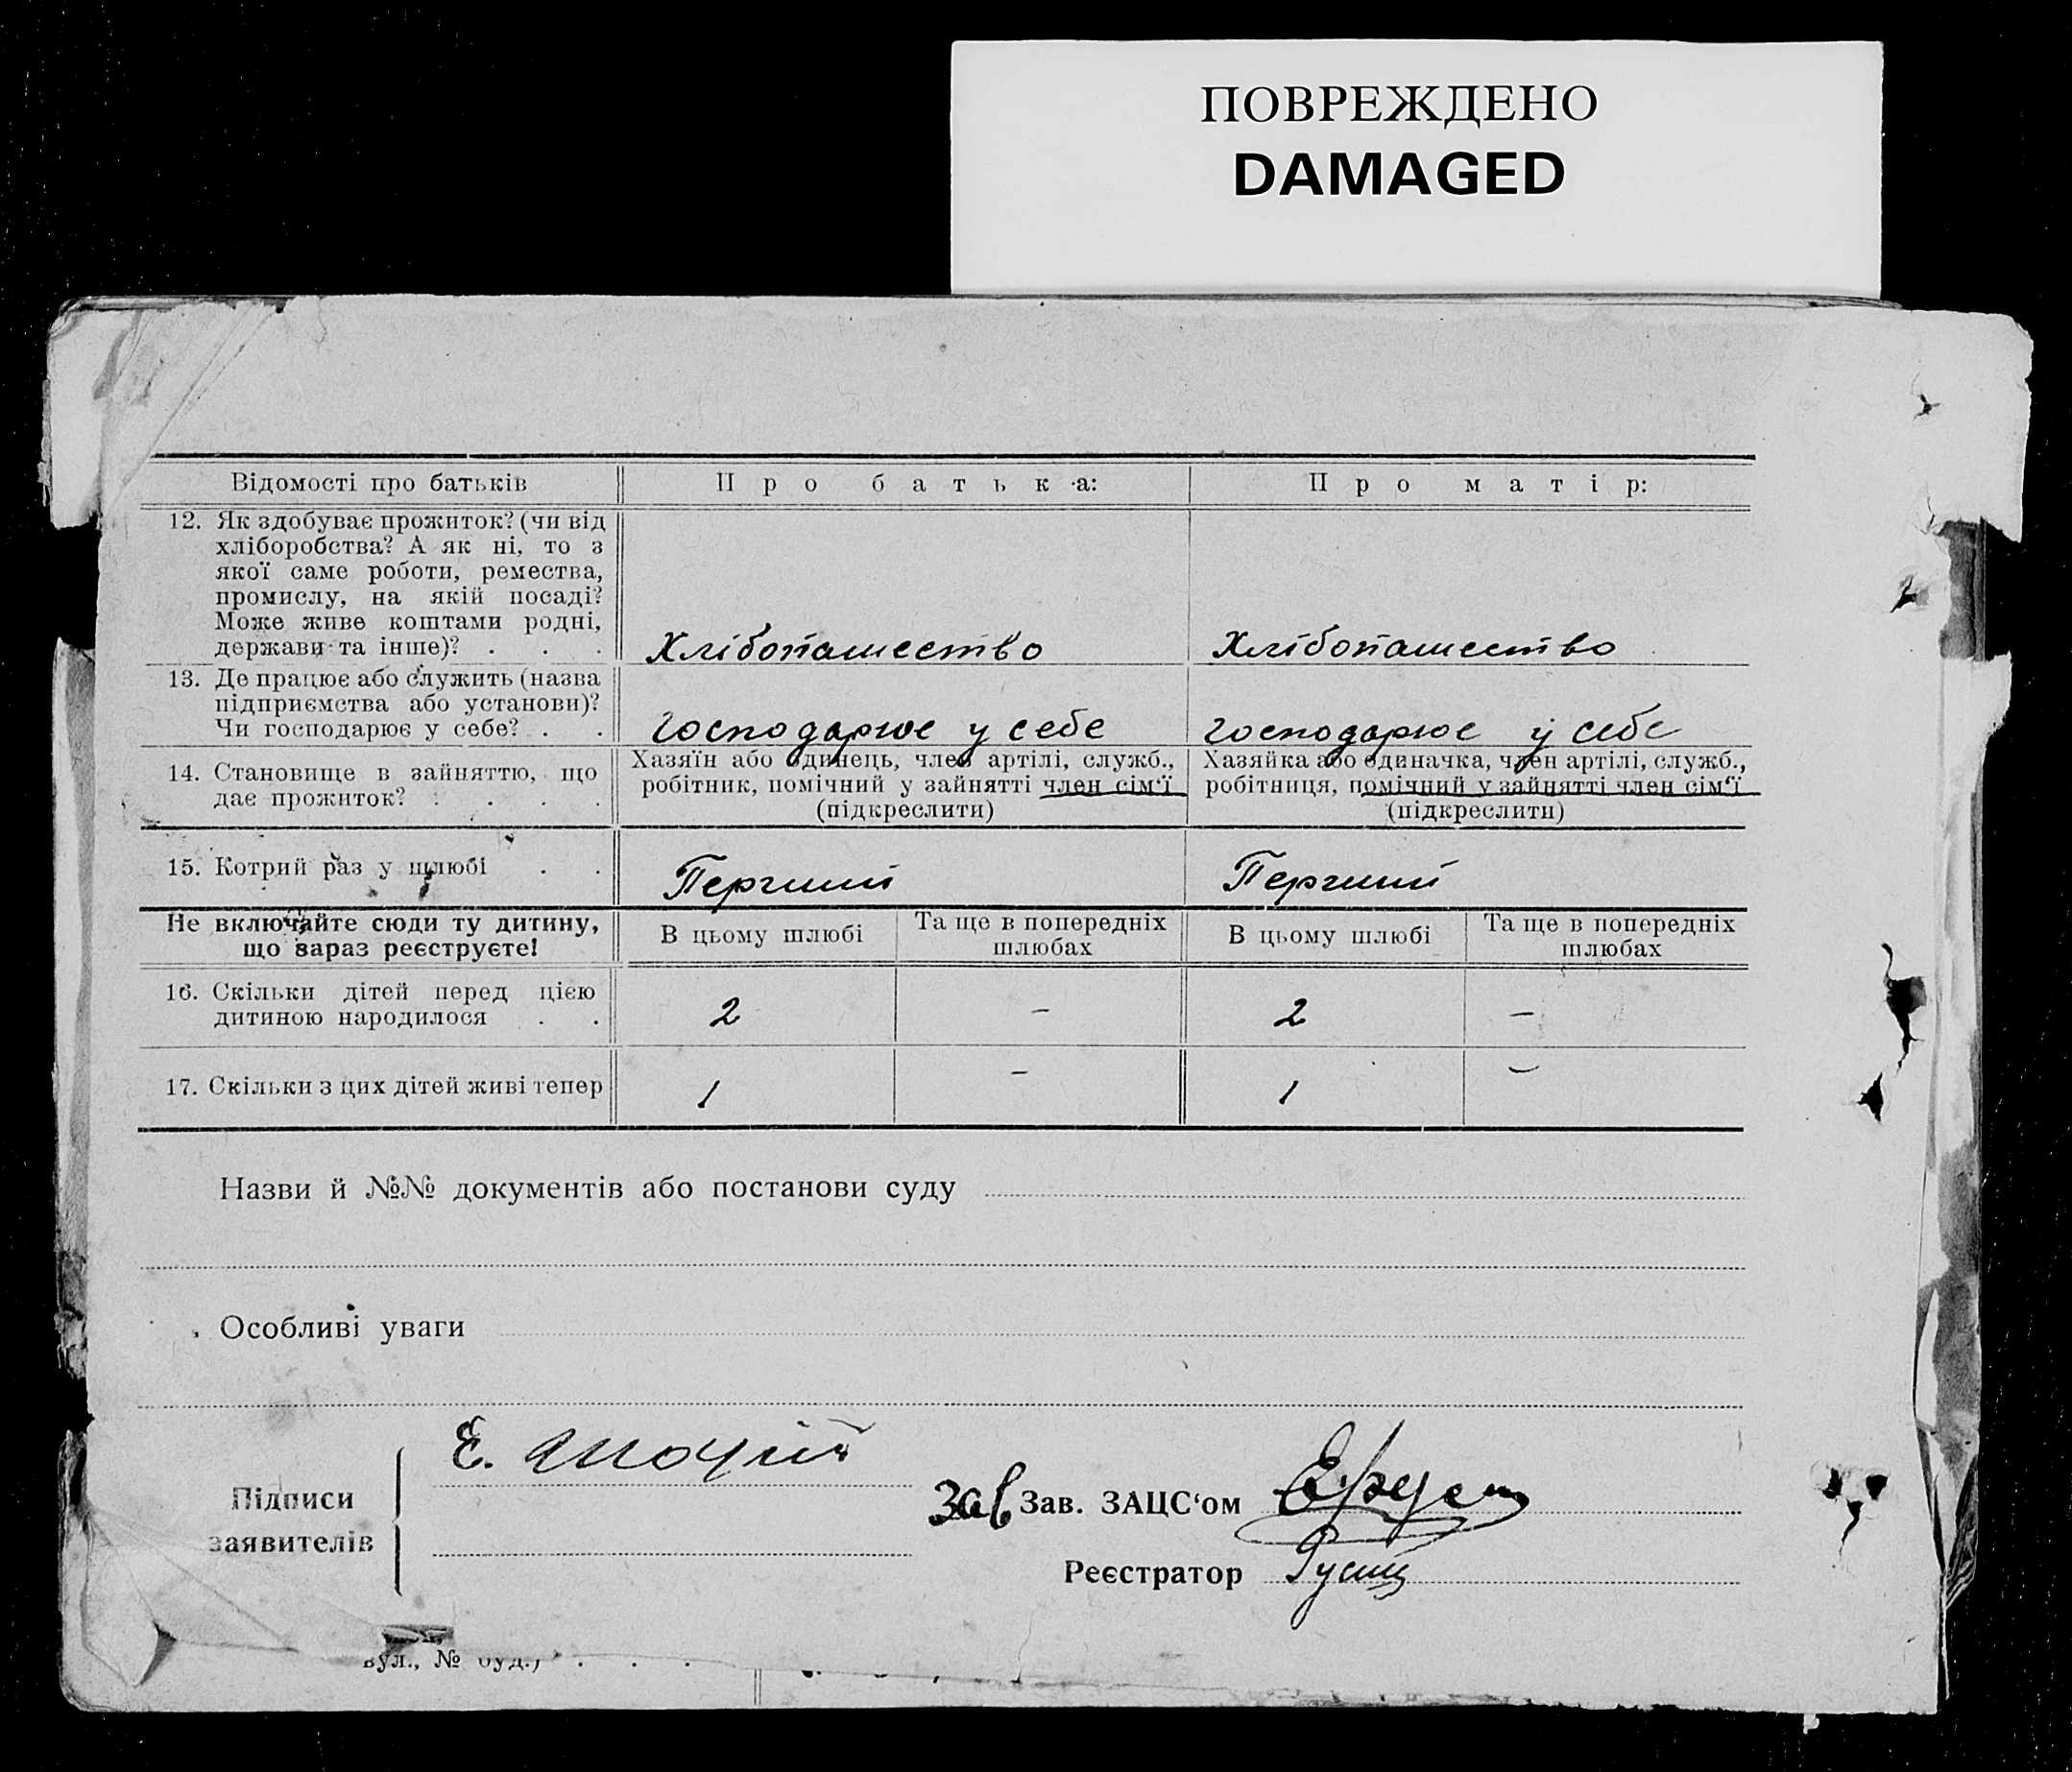 ПОВРЕЖДЕНО
DAMAGED
Відомості про батьків
Про батька:
Про матір:
12. Як здобуває прожиток? (чи від
хліборобства? А як ні, то з
якої саме роботи, ремества,
промислу, на якій посаді?
Може живе коштами родні,
держави та інше)? . . .
Хлібопашество
Хлібопашество
13. Де працює або служить (назва
підприємства або установи)?
Чи господарює у себе? . .
Господарює у себе
Господарює у себе
14. Становище в зайняттю, що
дає прожиток? . . . .
Хазяїн або одинець, член артілі, служб.,
робітник, помічний у зайнятті член сім‘ї
(підкреслити)
Хазяйка або одиначка, член артілі, служб.,
робітниця, помічний у зайнятті член сім‘ї
(підкреслити)
15. Котрий раз у шлюбі . .
Перший
Перший
Не включайте сюди ту дитину,
що зараз реєструєте!
В цьому шлюбі
Та ще в попередніх
шлюбах
В цьому шлюбі
Та ще в попередніх
шлюбах
16. Скільки дітей перед цією
дитиною народилося . .
2
–
2
–
17. Скільки з цих дітей живі тепер
1
–
1
–
Назви й №№ документів або постанови суду
Особливі уваги
Підписи
заявителів
Е.
Зав Зав. ЗАЦС‘ом
Реєстратор
вул., № буд.) . . .